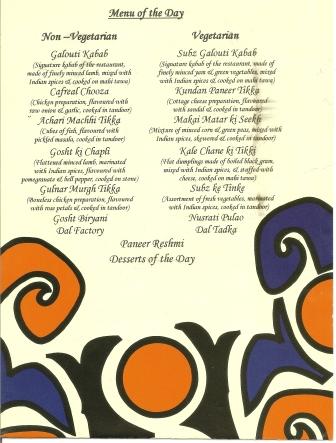 Menu of the Day
Non –Vegetarian
Galouti Kabab
(Signature kabab of the restaurant,
made of finely minced lamb, mixed with
Indian spices, & cooked on mahi tawa)
Cafreal Chooza
(Chicken preparation, flavoured with
raw onion & garlic, cooked in tandoor)
Achari Machhi Tikka
(Cubes of fish, flavoured with
pickled masala, cooked in tandoor)
Gosht ki Chapli
(Flattened minced lamb, marinated
with Indian spices, flavoured with
pomegranate & bell pepper, cooked on stone)
Gulnar Murgh Tikka
(Boneless chicken preparation, flavoured
with rose petals & cooked in tandoor)
Gosht Biryani
Dal Factory
Vegetarian
Subz Galouti Kabab
(Signature kabab of the restaurant, made of
finely minced yam & green vegetables, mixed
with Indian spices & cooked on mahi tawa)
Kundan Paneer Tikka
(Cottage cheese preparation, flavoured
with sandal & cooked in tandoor)
Makai Matar ki Seekh
(Mixture of minced corn & green peas, mixed with
Indian spices, skewered & cooked in tandoor)
Kale Chane ki Tikki
(Flat dumplings made of boiled black gram,
mixed with Indian spices, & stuffed with
cheese, cooked on mahi tawa)
Subz ke Tinke
(Assortment of fresh vegetables, marinated
with Indian spices, cooked in tandoor)
Nusrati Pulao
Dal Tadka
Paneer Reshmi
Desserts of the Day